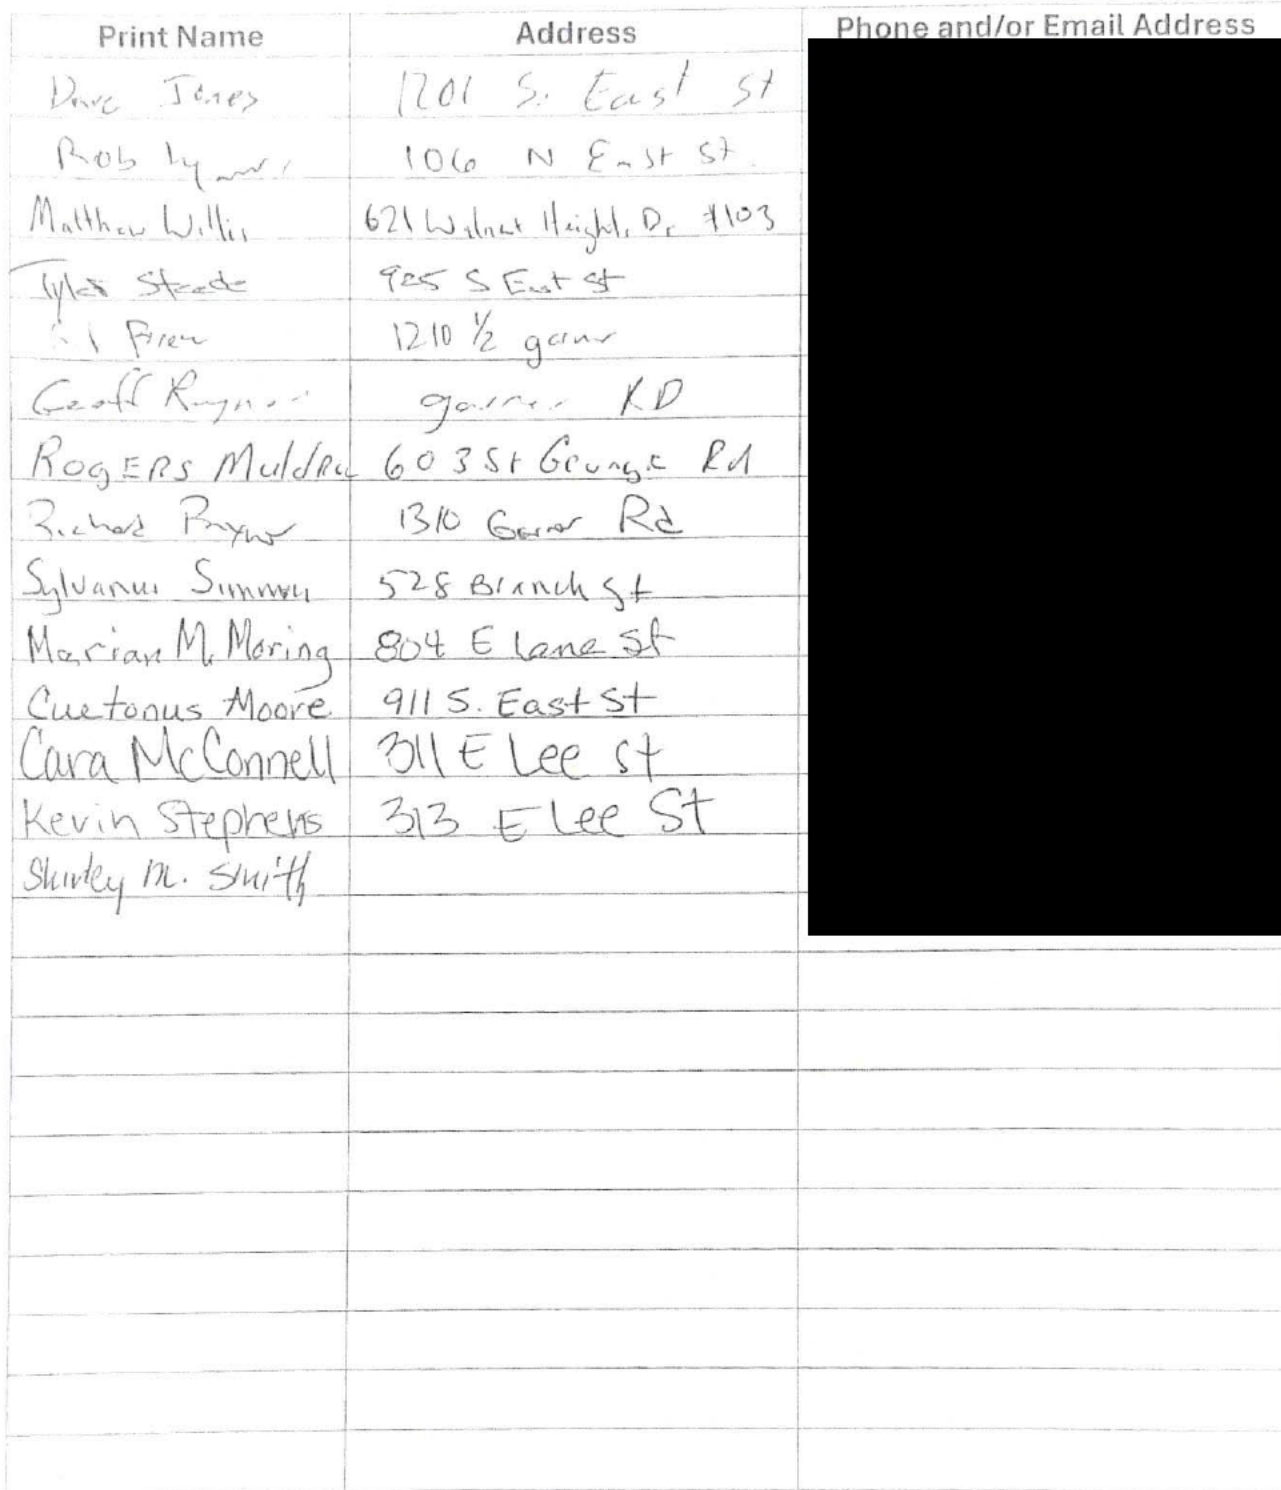 Print Name Address Phone and/or Email Address
Dave Jones 1201 S. East St
Rob 106 N East St.
Matthew Willis 621 Walnut Heights Dr #103
Tyler 925 S East St
1210 1/2 garner
Geoff garner RD
ROGERS 603 St George Rd
Richard 1310 Garner Rd
Sylvanus 528 Branch St
Marian M. Moring 804 E Lane St
Cuetonus Moore 911 S. East St
Cara McConnell 311 E Lee St
Kevin Stephens 313 E Lee St
Shirley M. Smith